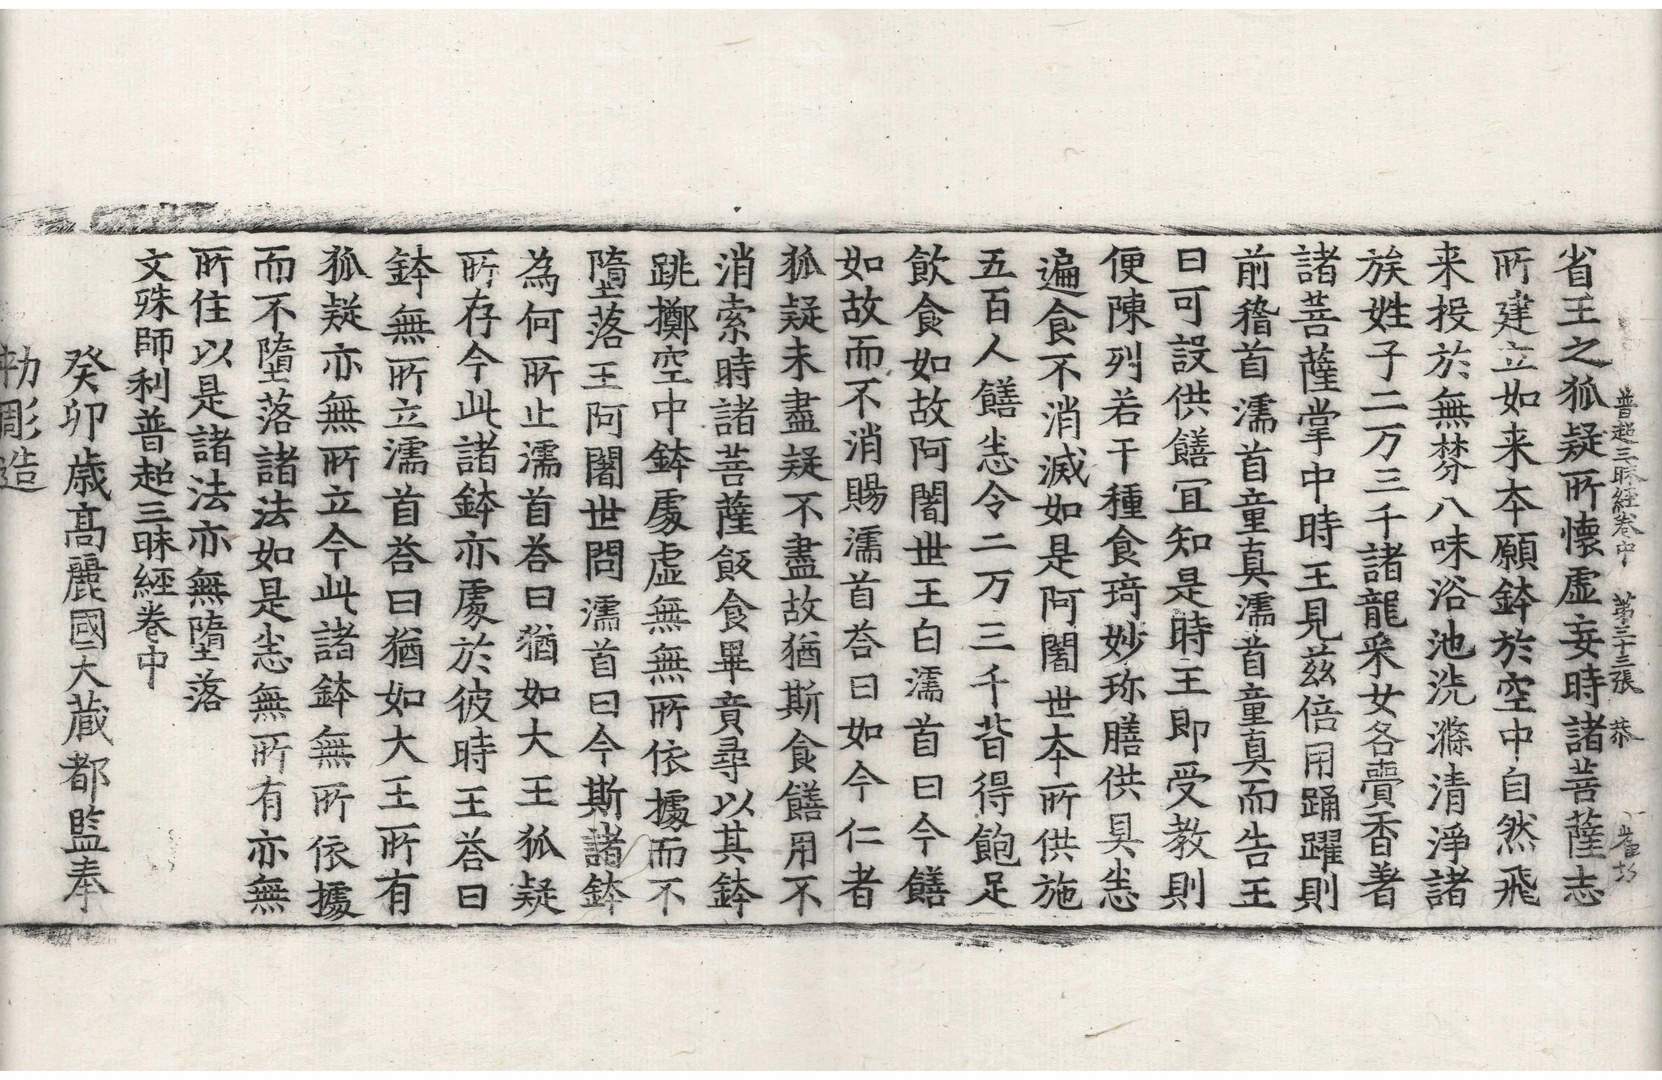 普超三昧經卷中　第三十三張　恭
省王之狐疑所懷虛妄時諸菩薩志
所建立如来本願鉢於空中自然飛
来投於無棥八味浴池洗滌清淨諸
族姓子二万三千諸龍采女各賣香着
諸菩薩掌中時王見茲倍用踊躍則
前稽首濡首童真濡首童真而告王
曰可設供饍冝知是時王即受教則
便陳列若干種食琦妙珎膳供具悉
遍食不消滅如是阿闍世本所供施
五百人饍悉令二万三千皆得飽足
飲食如故阿闍世王白濡首曰今饍
如故而不消賜濡首荅曰如今仁者
狐疑未盡疑不盡故猶斯食饍用不
消索時諸菩薩飯食畢竟尋以其鉢
跳擲空中鉢處虛無無所依據而不
墮落王阿闍世問濡首曰今斯諸鉢
為何所止濡首荅曰猶如大王狐疑
所存今此諸鉢亦處於彼時王荅曰
鉢無所立濡首荅曰猶如大王所有
狐疑亦無所立今此諸鉢無所依據
而不墮落諸法如是悉無所有亦無
所住以是諸法亦無墮落
文殊師利普超三昧經卷中
癸卯歲高麗國大藏都監奉
勑彫造